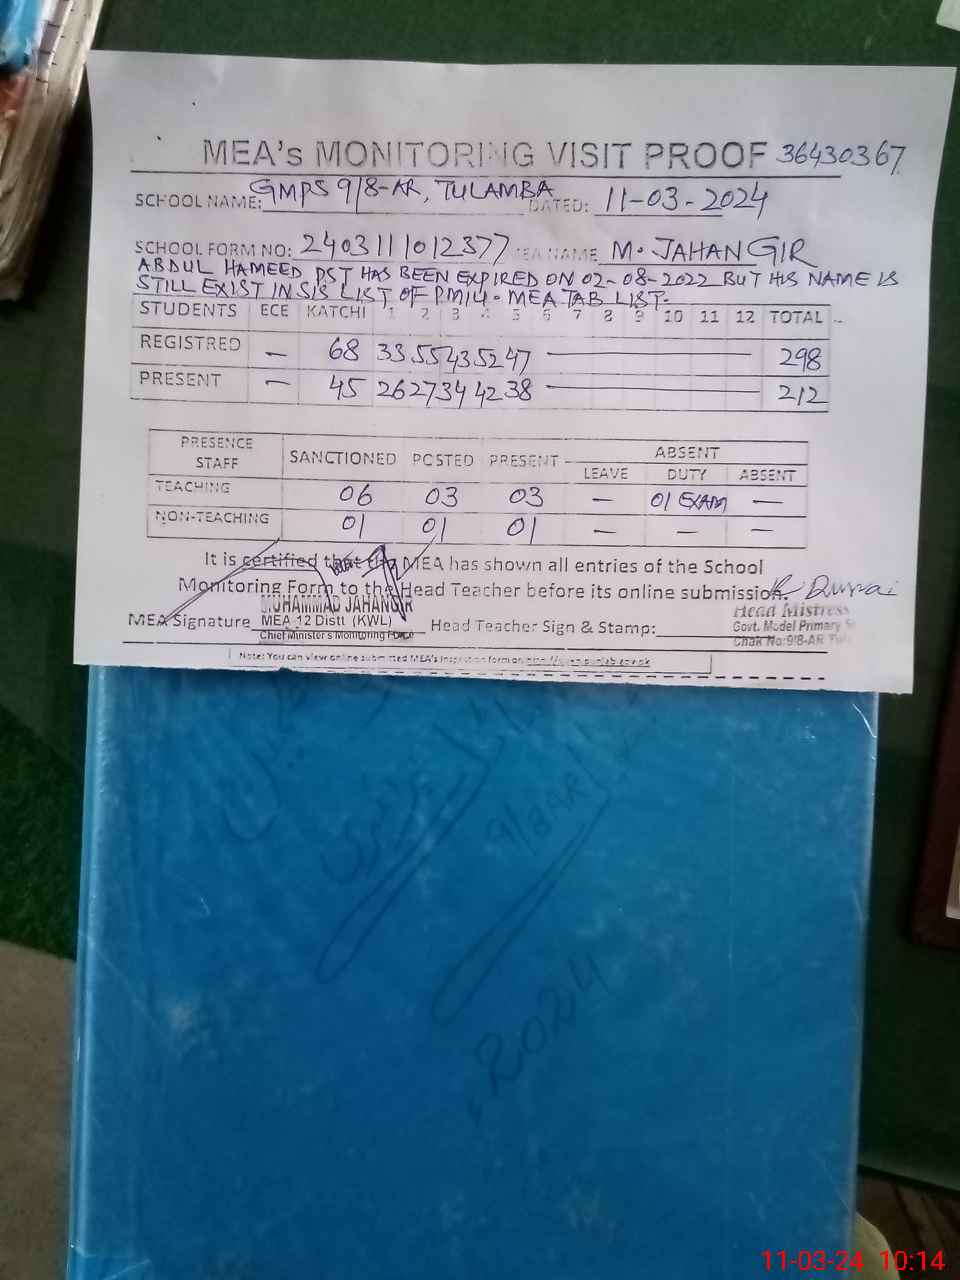 MEA's MONITORING VISIT PROOF 36430367
SCHOOL NAME: GMPS 9/8-AR, TULAMBA DATED: 11-03-2024
SCHOOL FORM NO: 2403111012377 MEA NAME M. JAHANGIR
ABDUL HAMEED PST HAS BEEN EXPIRED ON 02-08-2022 BUT HIS NAME IS
STILL EXIST IN SIS LIST OF PMIU. MEA TAB LIST.
STUDENTS ECE KATCHI 1 2 3 4 5 6 7 8 9 10 11 12 TOTAL
REGISTRED — 68 33 55 43 52 47 — 298
PRESENT — 45 26 27 34 42 38 — 212
PRESENCE STAFF SANCTIONED POSTED PRESENT ABSENT
LEAVE DUTY ABSENT
TEACHING 06 03 03 — 01 EXAM —
NON-TEACHING 01 01 01 — — —
It is certified that the MEA has shown all entries of the School
Monitoring Form to the Head Teacher before its online submission.
MUHAMMAD JAHANGIR
MEA Signature MEA 12 Distt (KWL) Head Teacher Sign & Stamp:
Chief Minister's Monitoring Force
Head Mistress
Govt. Model Primary
Chak No:9/8-AR
Note: You can view online submitted MEA's inspection form on
9/8AR
2024
11-03-24 10:14